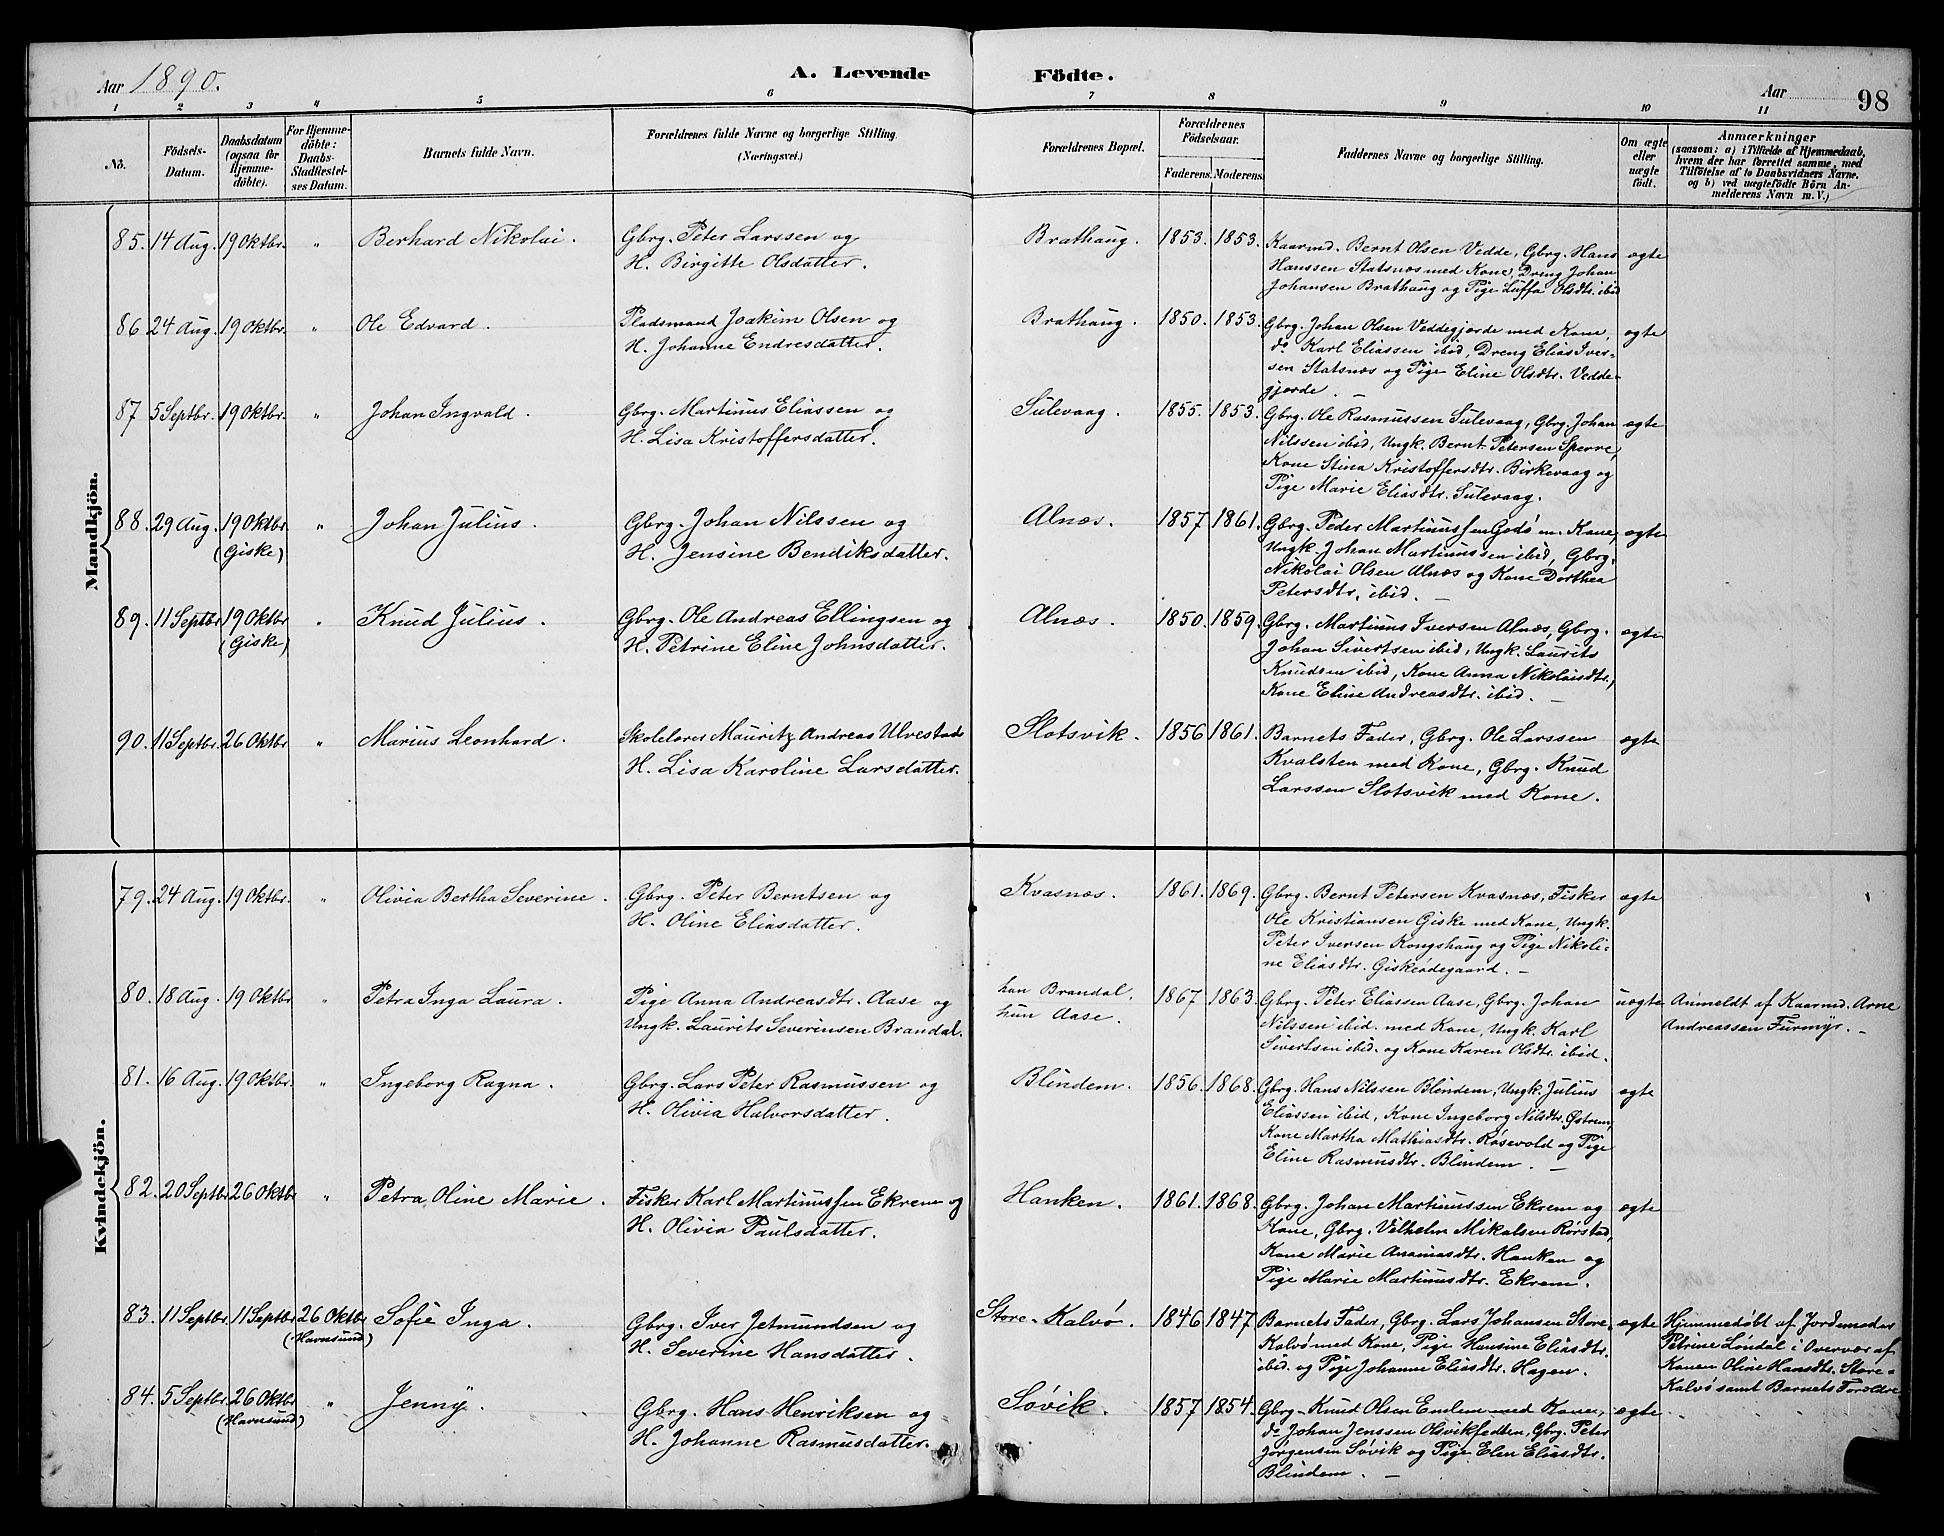 Aar 1890.
A. Levende Födte.
Aar
98
1 2 3 4 5 6 7 8 9 10 11
No.
Födsels-Datum.
Daabsdatum (ogsaa for Hjemme-döbte).
For Hjemme-döbte: Daabs-Stadfæstel-ses Datum.
Barnets fulde Navn.
Forældrenes fulde Navne og borgerlige Stilling. (Næringsvei.)
Forældrenes Bopæl.
Forældrenes Födselsaar.
Faderens. Moderens.
Faddernes Navne og borgerlige Stilling.
Om ægte eller uægte födt.
Anmærkninger
(saasom: a) i Tilfælde af Hjemmedaab, hvem der har forrettet samme, med Tilföielse af to Daabsvidners Navne. og b) ved uægtefödte Börn An-melderens Navn m. V.)
Mandkjön.
85. 14 Aug. 19 Oktbr. " Berhard Nikolai. Gbrg. Peter Larssen og
H. Birgitte Olsdatter.
Brathaug. 1853. 1853. Kaarmd. Bernt Olsen Vedde, Gbrg. Hans
Hanssen Statsnæs med Kone, Dreng Johan
Johansen Brathaug og Pige Luffa Olsdtr. ibid
ægte
86. 24 Aug. 19 Oktbr. " Ole Edvard. Pladsmand Joakim Olsen og
H. Johanne Endresdatter.
Brathaug. 1850. 1853. Gbrg. Johan Olsen Veddegjerde med Kone,
do Karl Eliassen ibid, Dreng Elias Iver-
sen Statsnæs og Pige Eline Olsdtr. Vedde-
gjerde. —
ægte
87 5 Septbr. 19 Oktbr. " Johan Ingvald. Gbrg. Martinus Eliassen og
H. Lisa Kristoffersdatter.
Sulevaag. 1855. 1853. Gbrg. Ole Rasmussen Sulevaag, Gbrg. Johan
Nilssen ibid, Ungk. Bernt Petersen Sperre,
Kone Stina Kristoffersdtr. Birkevaag og
Pige Marie Eliasdtr. Sulevaag.
ægte
88. 29 Aug. 19 Oktbr (Giske) " Johan Julius. Gbrg. Johan Nilssen og
H. Jensine Bendiksdatter.
Alnæs. 1857 1861. Gbrg. Peder Martinussen Godø m. Kone,
Ungk. Johan Martinussen ibid, Gbrg.
Nikolai Olsen Alnæs og Kone Dorthea
Petersdtr, ibid. —
ægte
89. 11 Septbr 19 Oktbr (Giske) " Knud Julius. Gbrg. Ole Andreas Ellingsen og
H. Petrine Eline Johnsdatter.
Alnæs. 1850. 1859. Gbrg. Martinus Iversen Alnæs, Gbrg.
Johan Sivertsen ibid, Ungk. Laurits
Knudsen ibid, Kone Anna Nikolaisdtr,
Kone Eline Andreasdtr. ibid. —
ægte
90. 11 Septbr. 26 Oktbr " Marius Leonhard. Skolelærer Mauritz Andreas Ulvestad
H. Lisa Karoline Larsdatter.
Slotsvik. 1856 1861. Barnets Fader, Gbrg. Ole Larssen
Kvalsten med Kone, Gbrg. Knud
Larssen Slotsvik med Kone.
ægte
Kvindekjön.
79. 24 Aug. 19 Oktbr. " Olivia Bertha Severine. Gbrg. Peter Berntsen og
H. Oline Eliasdatter.
Kvasnæs. 1861. 1869. Gbrg. Bernt Petersen Kvasnæs, Fisker
Ole Kristiansen Giske med Kone, Ungk.
Peter Iversen Kongshaug og Pige Nikoli-
ne Eliasdtr. Giskeødegaard. —
ægte
80. 18 Aug. 19 Oktbr " Petra Inga Laura. Pige Anna Andreasdtr. Aase og
Ungk. Laurits Severinsen Brandal.
han Brandal.
hun Aase.
1867 1863. Gbrg. Peter Eliassen Aase, Gbrg. Johan
Nilssen ibid. med Kone, Ungk. Karl
Sivertsen ibid. og Kone Karen Olsdtr. ibid.
uægte Anmeldt af Kaarmd. Arne
Andreassen Furmyr. —
81. 16 Aug. 19 Oktbr. " Ingeborg Ragna. Gbrg. Lars Peter Rasmussen og
H. Olivia Halvorsdatter.
Blindem. 1856. 1868. Gbrg. Hans Nilssen Blindem, Ungk. Julius
Eliassen ibid, Kone Ingeborg Nilsdtr. Østrem,
Kone Martha Mathiasdtr. Røsevold og Pige
Eline Rasmusdtr. Blindem. —
ægte
82. 20 Septbr 26 Oktbr " Petra Oline Marie. Fisker Karl Martinussen Ekrem og
H. Olivia Paulsdatter.
Hanken. 1861. 1868. Gbrg. Johan Martinussen Ekrem og
Kone, Gbrg. Vilhelm Mikalsen Rørstad,
Kone Marie Ananiasdtr. Hanken og
Pige Marie Martinusdtr. Ekrem.
ægte
83. 11 Septbr. 11 Septbr 26 Oktbr (Havnsund) Sofie Inga. Gbrg. Iver Jetmundsen og
H. Severine Hansdatter.
Store-Kalvø. 1846 1847 Barnets Fader, Gbrg. Lars Johansen Store-
Kalvø med Kone, Pige Hansine Eliasdtr.
ibid. og Pige Johanne Eliasdtr. Hagen.
ægte Hjemmedøbt af Jordemoder
Petrine Løndal i Overvær af
Konen Oline Hansdtr. Store-
Kalvø samt Barnets Forældre
84. 5 Septbr. 26 Oktbr (Havnsund) " Jenny. Gbrg. Hans Henriksen og
H. Johanne Rasmusdatter.
Søvik. 1857 1854. Gbrg. Knud Olsen Emlem med Kone,
do Johan Jenssen Olsvikfedten, Gbrg. Peter
Jørgensen Søvik og Pige Elen Eliasdtr.
Blindem. —
ægte